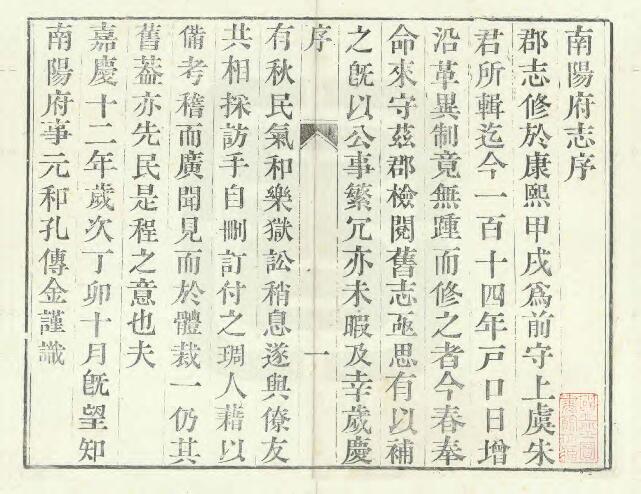 南陽府志序
郡志修於康熙甲戌爲前守上虞朱
君所輯迄今一百十四年戸口日增
沿革異制竟無踵而修之者今春奉
命來守茲郡檢閱舊志亟思有以補
之旣以公事繁冗亦未暇及幸歲慶
序
一
有秋民氣和樂獄訟稍息遂與僚友
共相採訪手自刪訂付之琱人藉以
備考稽而廣聞見而於體裁一仍其
舊葢亦先民是程之意也夫
嘉慶十二年歲次丁卯十月旣望知
南陽府事元和孔傳金謹識